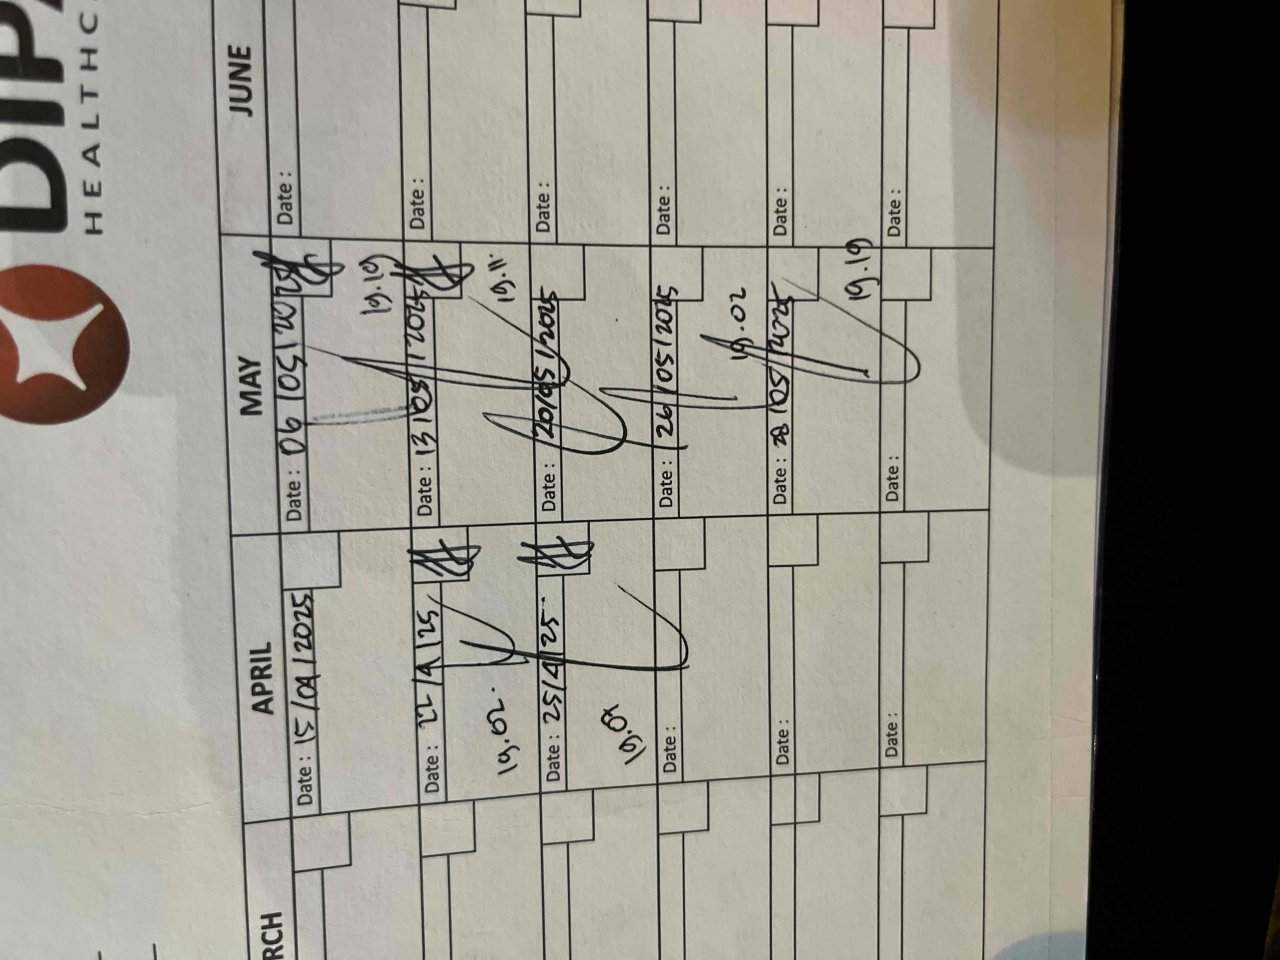 HEALTHC
RCH
APRIL
MAY
JUNE
Date : 15/04/2025
Date : 06/05/2025
Date :
19.19
Date : 22/4/25
Date : 13/05/2025
Date :
19.02.
19.11
Date : 25/4/25
Date : 20/05/2025
Date :
Date :
Date : 26/05/2025
Date :
19.02
Date :
Date : 28/05/2025
Date :
19.19
Date :
Date :
Date :